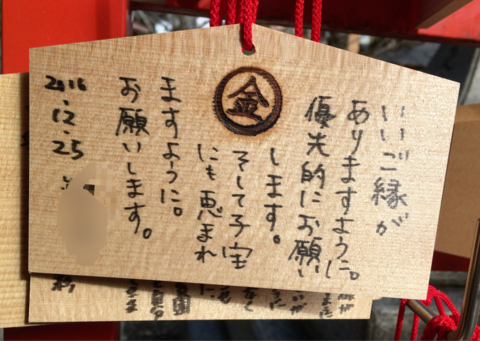 金
いいご縁が
ありますように。
優先的にお願い
します。
そして子宝
にも恵まれ
ますように。
お願いします。
2016.12.25